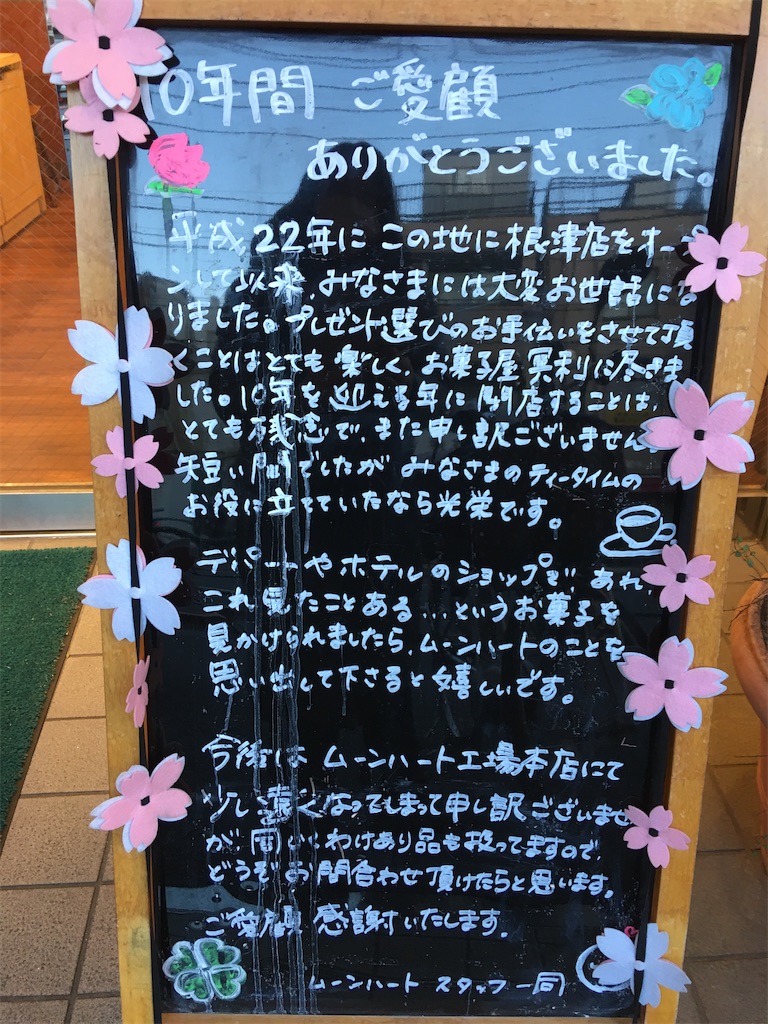 10年間 ご愛顧
ありがとうございました。
平成22年に この地に根津店をオープ
ンして以来、みなさまには大変お世話にな
りました。プレゼント選びのお手伝いをさせて頂
くことはとても楽しく、お菓子屋冥利に尽きま
した。10年を迎える年に閉店することは、
とても残念で、また申し訳ございません。
短い間でしたが みなさまのティータイムの
お役に立てていたなら光栄です。
デパートやホテルのショップで あれ、
これ見たことある…というお菓子を
見かけられましたら、ムーンハートのことを
思い出して下さると嬉しいです。
今後は ムーンハート工場本店にて
少し遠くなってしまって申し訳ございませ
が 同じくわけあり品も扱ってますので、
どうぞお問合わせ頂けたらと思います。
ご愛顧 感謝いたします。
ムーンハート スタッフ一同